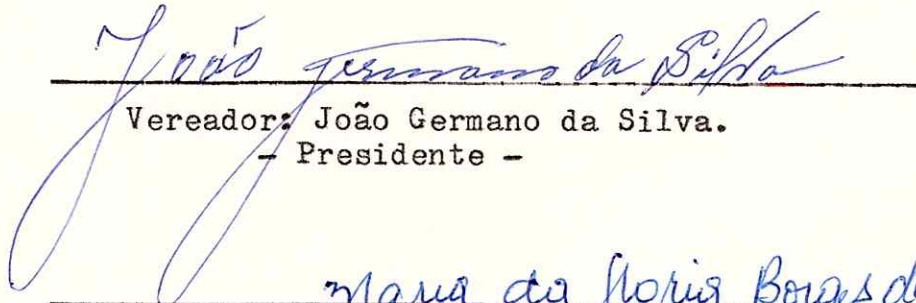 João Germano da Silva
Vereador: João Germano da Silva.
- Presidente -
Maria da Gloria Borges d